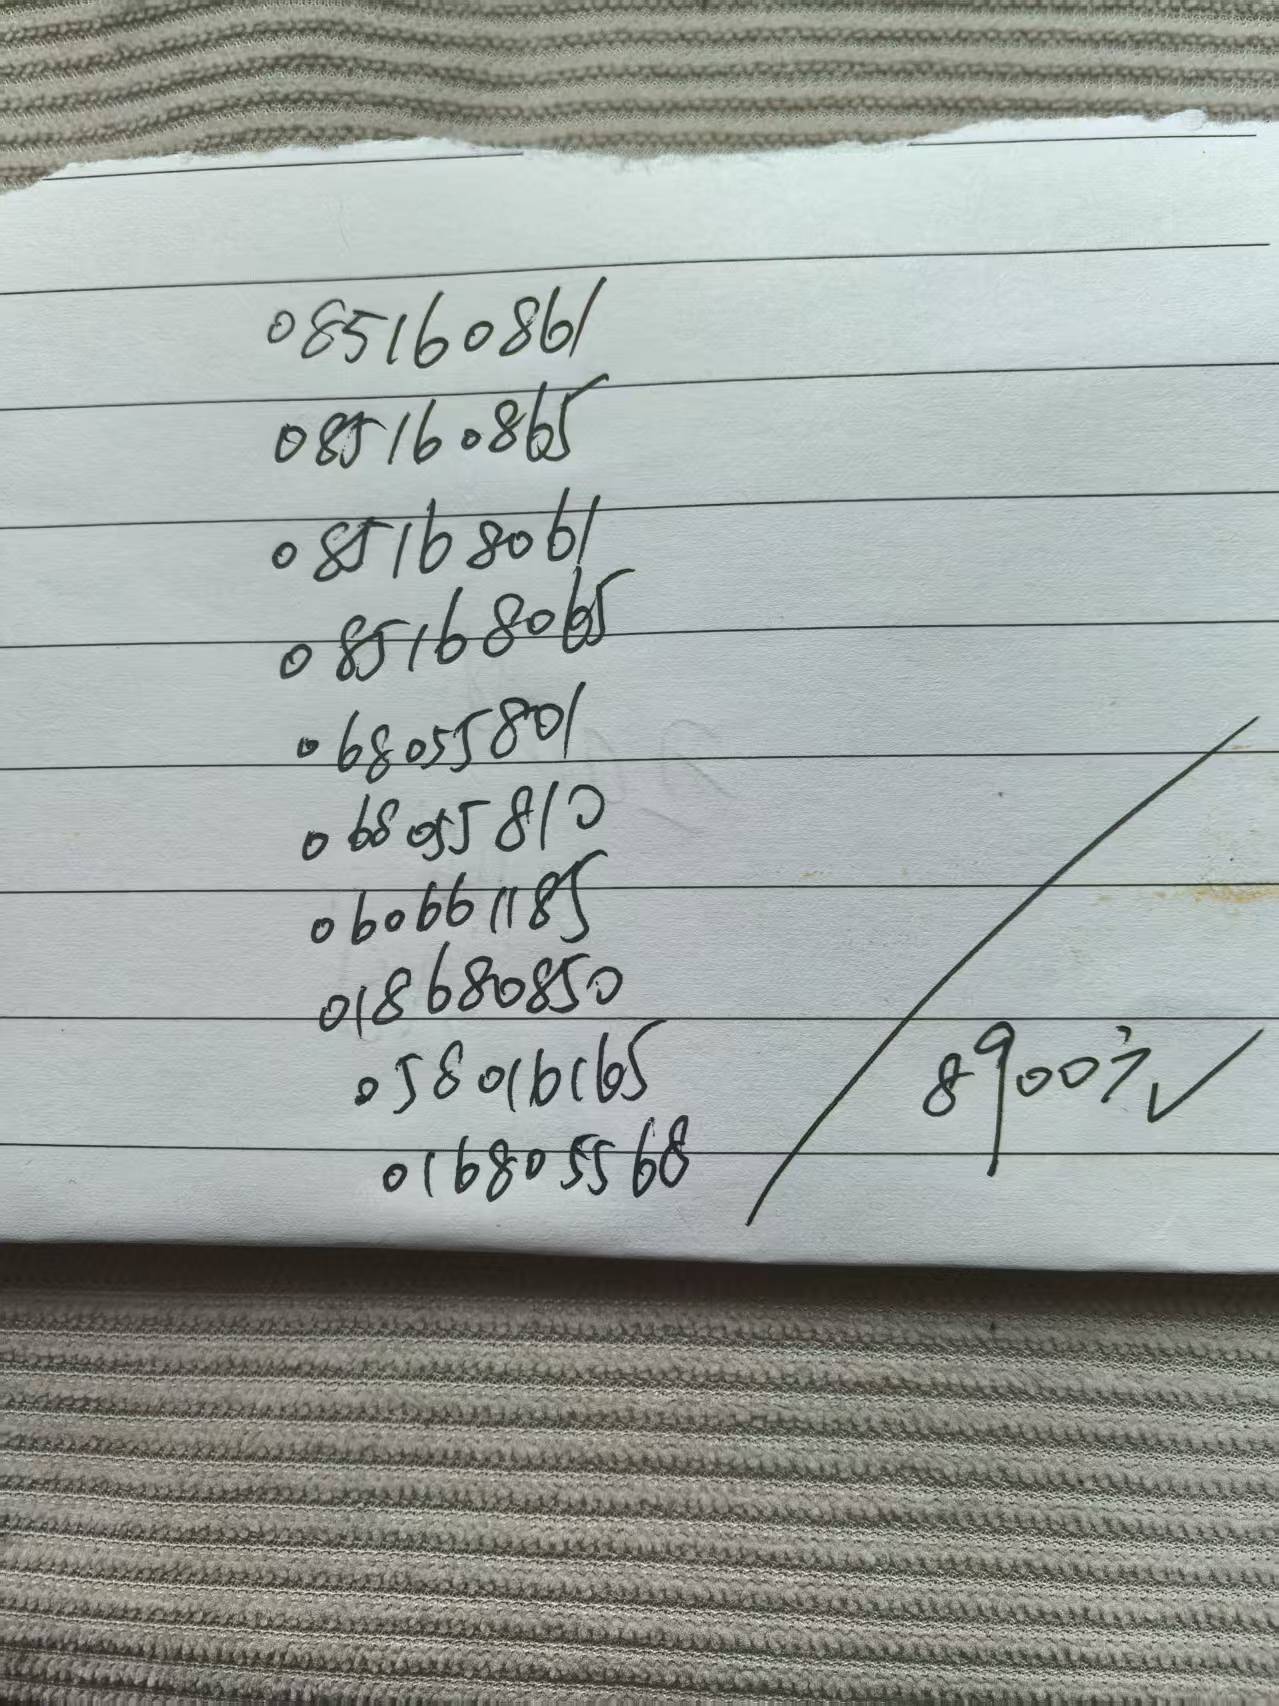 085160861
085160865
085168061
085168065
068055801
068055810
060661185
018680850
058016165
016805568
8900